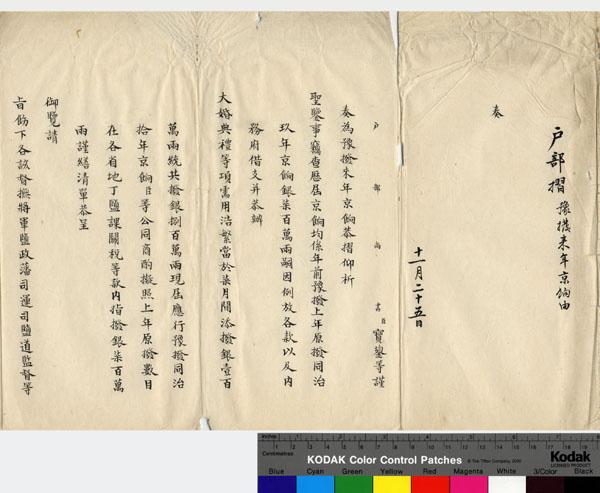 戶部摺 豫撥來年京餉由
十一月二十五日
奏
戶部尚書臣寶鋆等謹
奏為豫撥來年京餉恭摺仰祈
聖鑒事竊查歷屆京餉均係年前豫撥上年原撥同治
玖年京餉銀柒百萬兩嗣因例放各款以及內
務府借支并恭辦
大婚典禮等項需用浩繁當於柒月間添撥銀壹百
萬兩統共撥銀捌百萬兩現屆應行豫撥同治
拾年京餉臣等公同商酌擬照上年原撥數目
在各省地丁鹽課關稅等款內指撥銀柒百萬
兩謹繕清單恭呈
御覽請
旨飭下各該督撫將軍鹽政藩司運司鹽道監督等
Inches
Centimetres
KODAK Color Control Patches
Kodak
LICENSED PRODUCT
Blue Cyan Green Yellow Red Magenta White 3/Color Black